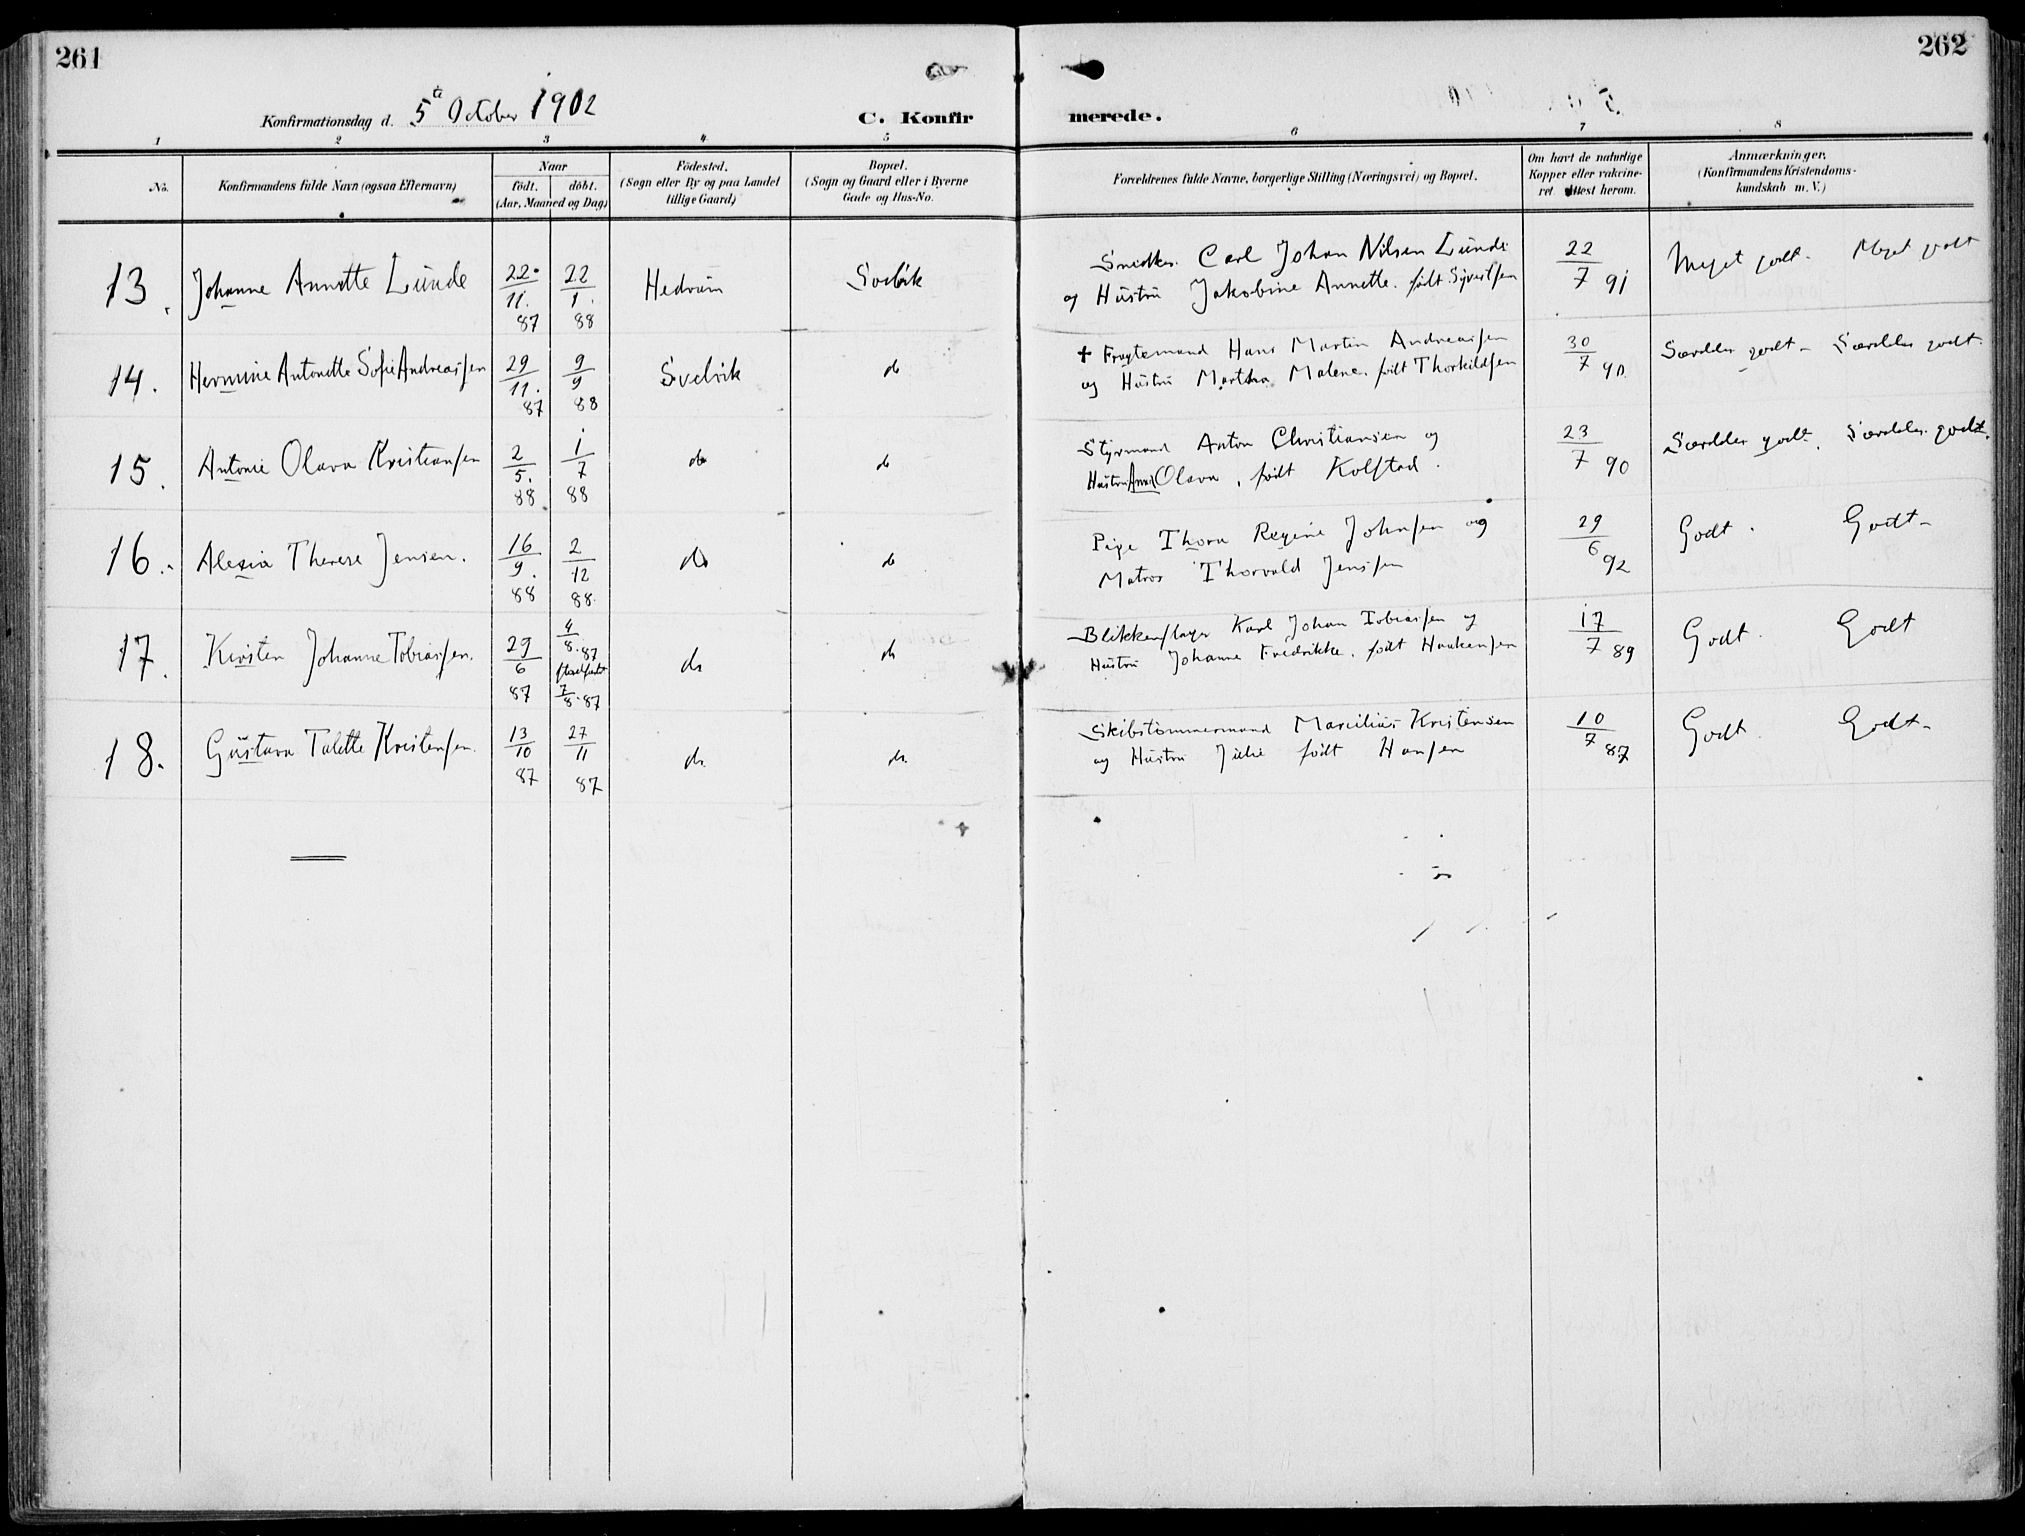 261
262
Konfirmationsdag d. 5te October 1902
C. Konfirmerede.
1 2 3 4 5 6 7 8
No.
Konfirmandens fulde Navn (ogsaa Efternavn)
Naar
født. døbt.
(Aar, Maaned og Dag)
Fødested.
(Sogn eller By og paa Landet
tillige Gaard)
Bopæl.
(Sogn og Gaard eller i Byerne
Gade og Hus-No.
Forældrenes fulde Navne, borgerlige Stilling (Næringsvei) og Bopæl.
Om havt de naturlige
Kopper eller vakcine-
ret. Attest herom.
Anmærkninger.
(Konfirmandens Kristendoms-
kundskab m. V.)
13. Johanne Annette Lunde 22/11. 87 22/1. 88 Hedrum Svelvik
Snedker Carl Johan Nilsen Lunde
og Hustru Jakobine Annette. født Syvertsen 22/7 91 Meget godt. Meget godt
14. Hermine Antonette Sofie Andreassen 29/11. 87 9/9 88 Svelvik do
† Fragtemand Hans Martin Andreassen
og Hustru Martha Malene. født Thorkildsen 30/7 90. Særdeles godt - Særdeles godt.
15. Antonie Olava Kristiansen 2/5. 88 1/7 88 do do
Styrmand Anton Christiansen og
Hustru Anna Olava, født Kolstad. 23/7 90 Særdeles godt. Særdeles godt.
16. Alexia Therese Jensen. 16/9. 88 2/12 88. do do
Pige Thora Regine Johnsen og
Matros Thorvald Jenssen 29/6 92 Godt. Godt-
17. Kirsten Johanne Tobiassen. 29/6 87 4/8. 87 7/8. 87 do do
Blikkenslager Karl Johan Tobiassen og
Hustru Johanne Fredrikke. født Haakensen 17/7 89 Godt. Godt
18. Gustava Talette Kristensen. 13/10 87 27/11 87 do. do.
Skibstømmermand Marcilius Kristensen
og Hustru Julie født Hansen 10/7 87 Godt. Godt-